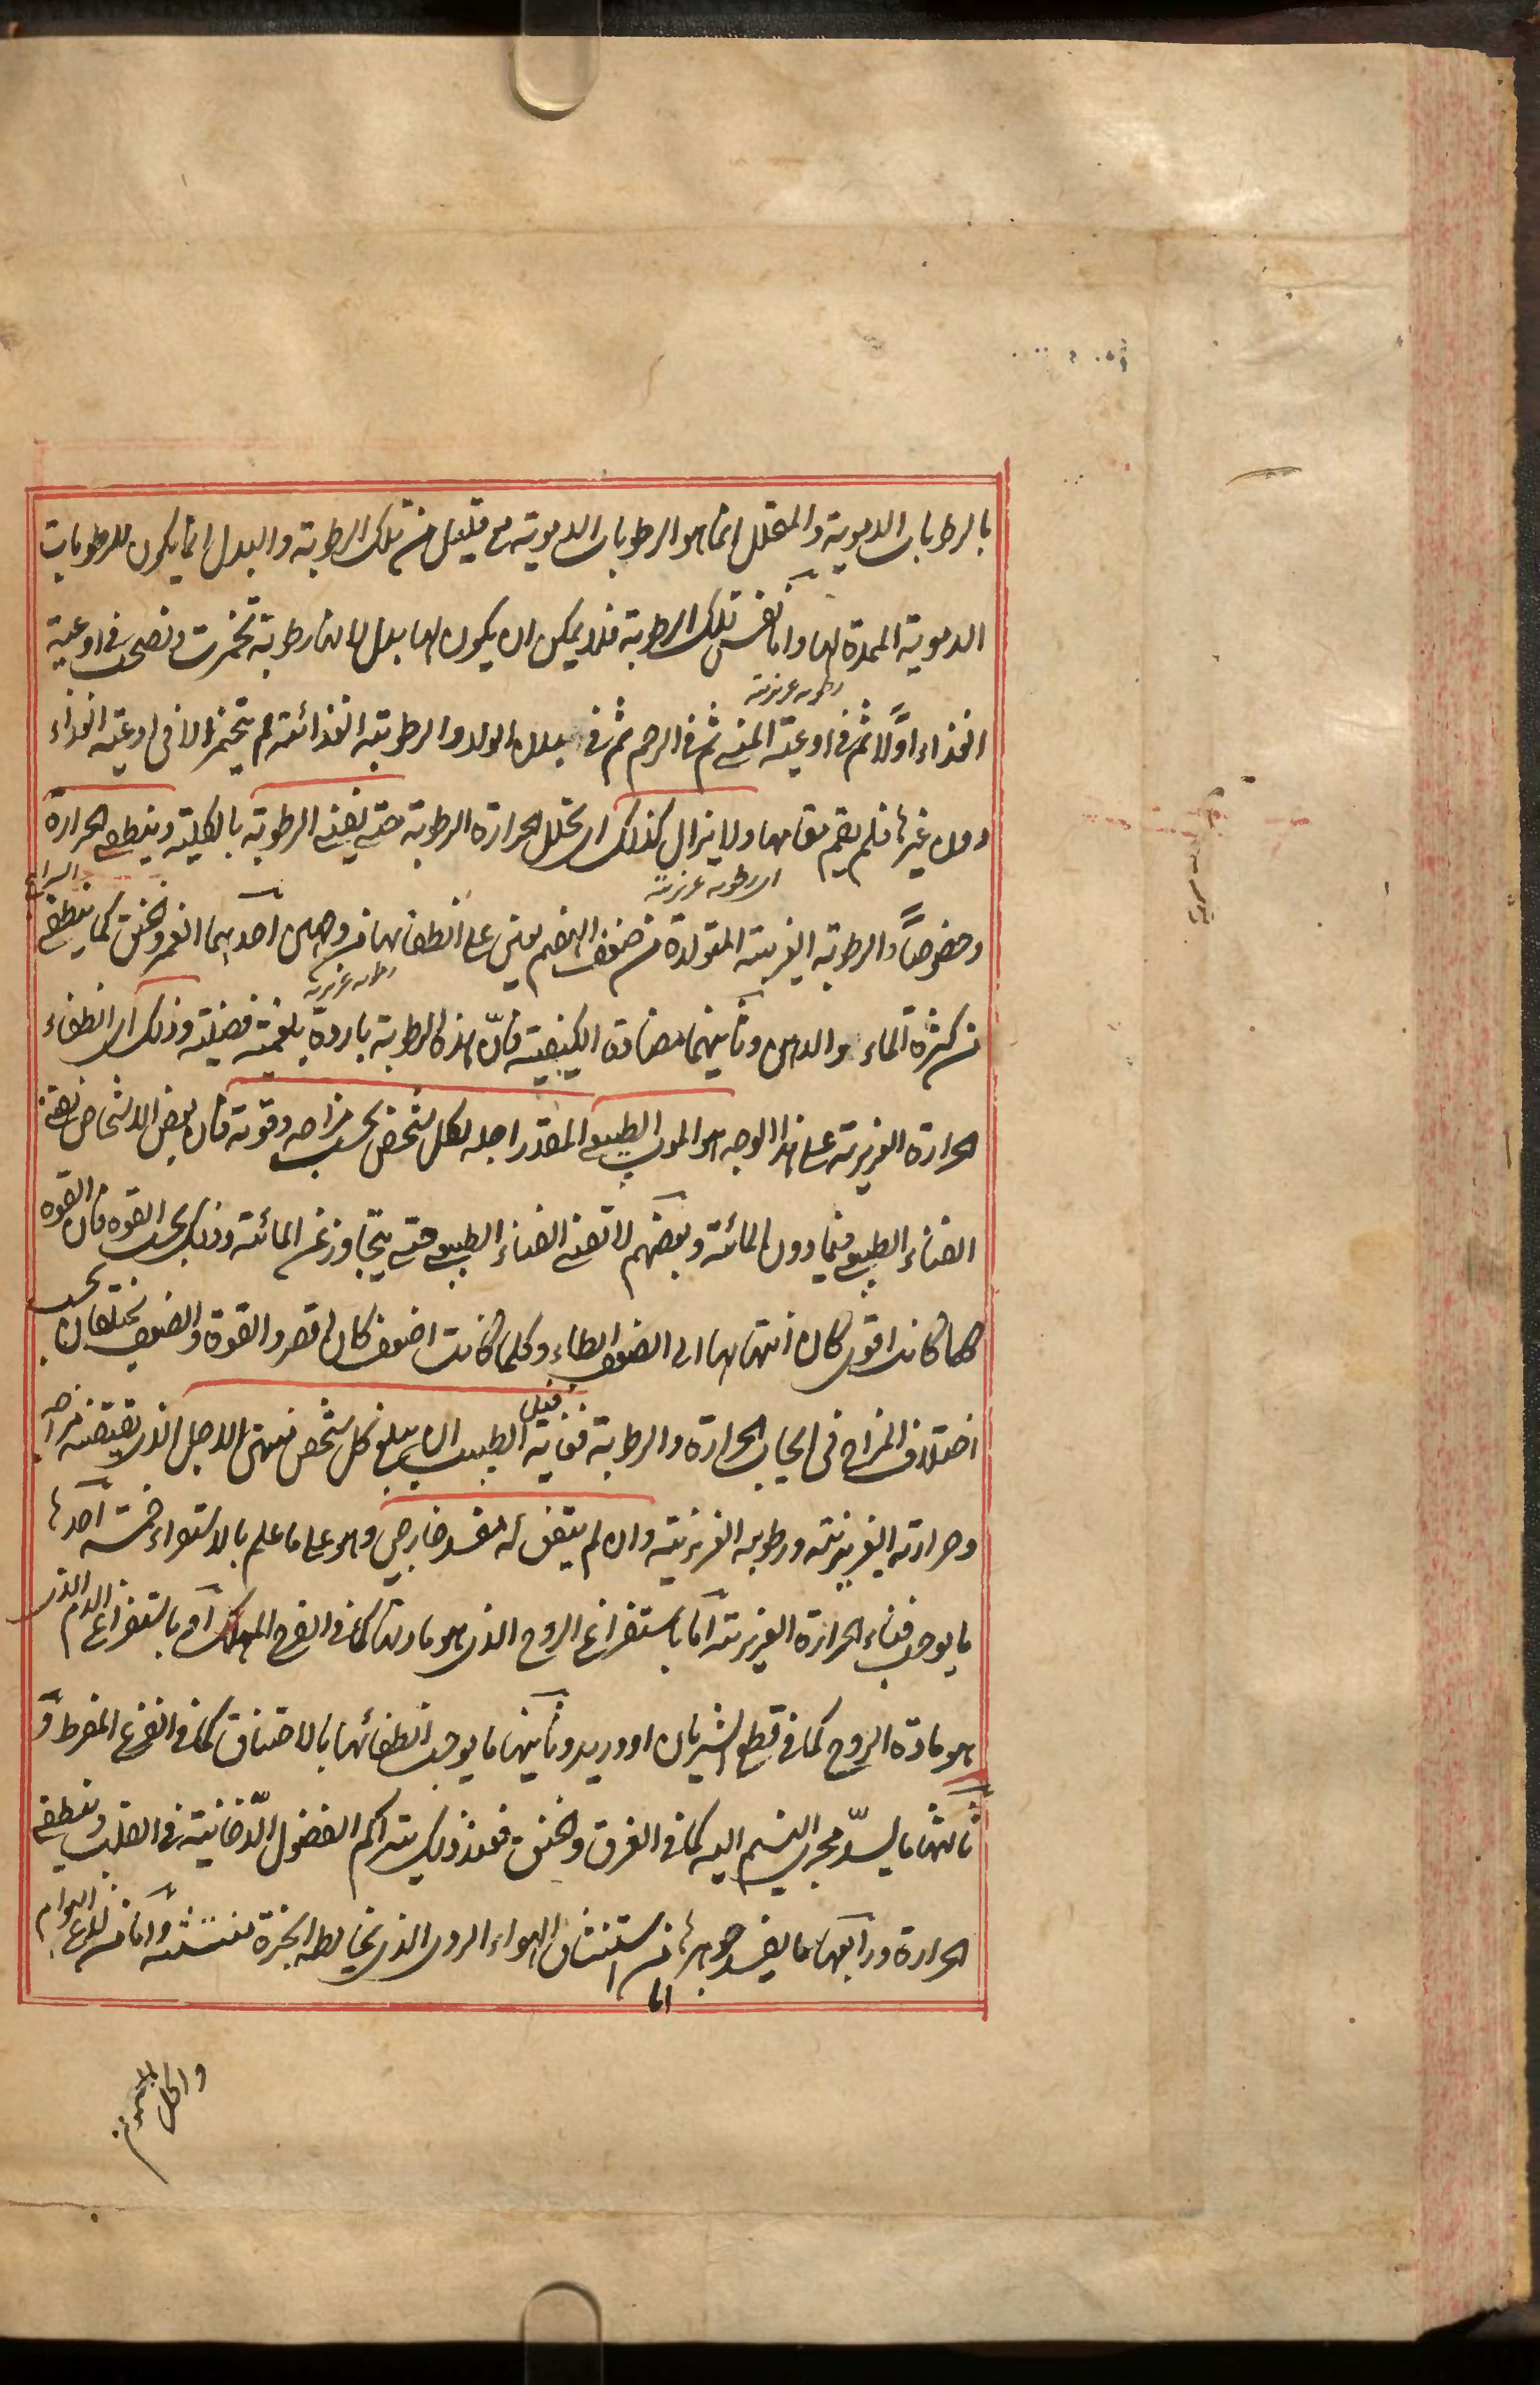 بالرطوبات الدموية والمتحلل انما هو الرطوبات الدموية مع قليل من تلك الرطوبة والبدل انما يكون للرطوبات
الدموية الممدة لها واما نفس تلك الرطوبة فلا يمكن ان يكون لها بدل لانها رطوبة تخمرت ونضجت فى اوعية
رطوبه غريزية
الغذاء اولًا ثم فى اوعية المنى ثم فى الرحم ثم فى بدن المولد والرطوبة الغذائية لم يتخمر الا فى اوعية الغذاء
دون غيرها فلم يقم مقامها ولا يزال كذلك اى تحلل الحرارة الرطوبة حتى يفنى الرطوبة بالكلية وينطفى الحرارة
اى رطوبه غريزية
وخصوصاً والرطوبة الغريبة المتولدة من ضعف الهضم يعين على انطفائها من وجهين احدهما الغمر والخنق كما ينطفى السراج
رطوبه غريزية
من كثرة الماء والدهن وثانيهما مضادة الكيفية فانّ هذه الرطوبة باردة بلغمية فضلية وذلك اى انطفاء
الحرارة الغريزية على هذا الوجه هو الموت الطبيعى المقدر اجله لكل شخص بحسب مزاجه وقوته فان بعض الاشخاص تفنى
الفناء الطبيعى فيما دون المائة وبعضهم لا تفنى الفناء الطبيعى حتى يتجاوز عن المائة وذلك بحسب القوه فان القوه
كلما كانت اقوى كان انتهائها الى الضعف ابطاء وكلما كانت اضعف كان اقصر والقوة والضعف يختلفان بحسب
اختلاف المزاج فى ايجاب الحرارة والرطوبة فغاية الطبيب ان يبلغ كل شخص منتهى الاجل الذى يقتضيه مزاجه
وحرارته الغريزية ورطوبته الغريزية وان لم يتفق له مفسد خارجى وهو على ما علم بالاستقراء خمسة احدها
ما يوجب فناء الحرارة الغريزية اما باستفراغ الروح الذى هو مادتها كما فى الفرح المهلك او باستفراغ الدم الذى
هو مادة الروح كما فى قطع الشريان او وريد وثانيها ما يوجب انطفائها بالاختناق كما فى الفزع المفرط و
ثالثها ما يسدّ مجرى النسيم اليه كما فى الغرق والخنق فعند ذلك يتراكم الفضول الدّخانية فى القلب وينطفى
الحرارة ورابعها ما يفسد جوهرها اما من استنشاق الهواء الردى الذى يخالطه ابخرة منتنة واما من لدغ الهوام
واكل السموم